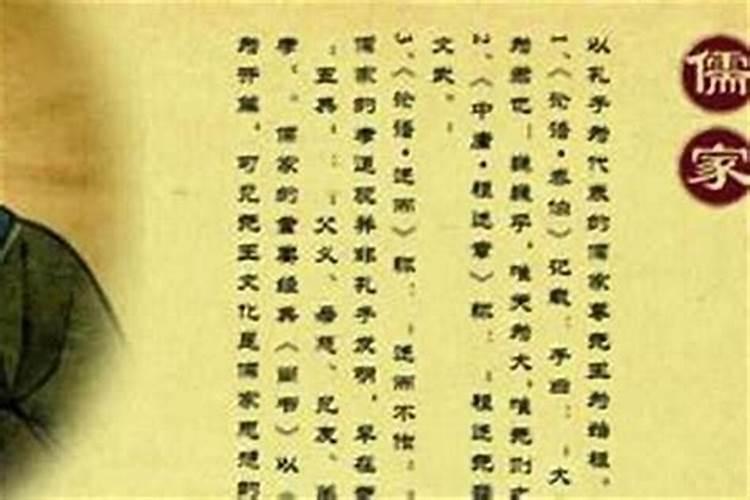 儒家
以孔子为代表的儒家尊尧王为始祖。
1、《论语·泰伯》记载：子曰：“大
为君也！巍巍乎，唯天为大，唯尧则之
2、《中庸·祖述章》称：“祖述尧
文武。”
3、《论语·述而》称：“述而不作：
儒家的孝道观并非孔子发明，早在
“五典”：“父义、母慈、兄友、弟
孝”。儒家的重要经典《尚书》以“
为开篇，可见尧王文化是儒家思想的